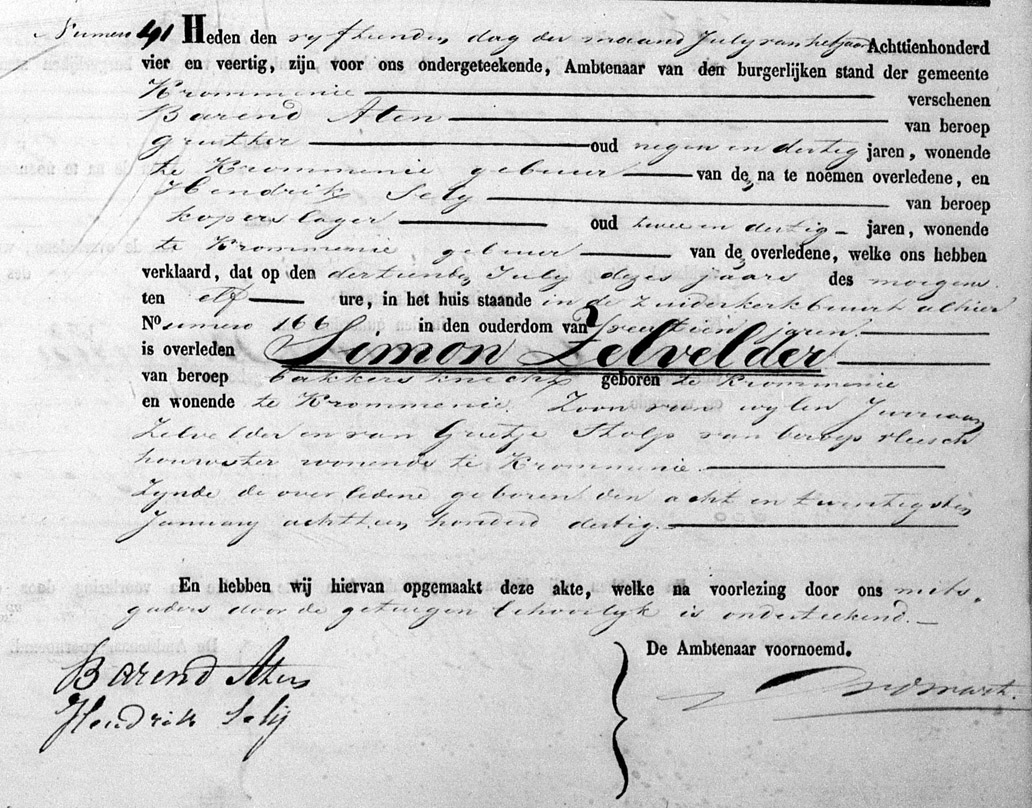 Numero 41 Heden den vyftienden dag der maand July van het jaar Achttienhonderd
vier en veertig, zijn voor ons ondergeteekende, Ambtenaar van den burgerlijken stand der gemeente
Krommenie verschenen
Barend Aten van beroep
grutter oud negen en dertig jaren, wonende
te Krommenie gebuur van de na te noemen overledene, en
Hendrik Sely van beroep
koperslager oud twee en dertig jaren, wonende
te Krommenie gebuur van de overledene, welke ons hebben
verklaard, dat op den dertiende July dezes jaars des morgens
ten elf ure, in het huis staande in de Zuiderkerkbuurt alhier
No umero 166 in den ouderdom van veertien jaren
is overleden Simon Zelvelder
van beroep bakkersknecht geboren te Krommenie
en wonende te Krommenie. Zoon van wylen Jurriaan
Zelvelder en van Grietje Stolp van beroep vleesch
houwster wonende te Krommenie.
Zynde de overledene geboren den acht en twentigsten
January achttien honderd dertig.
En hebben wij hiervan opgemaakt deze akte, welke na voorlezing door ons mits
gaders door de getuigen behoorlyk is onderteekend.
De Ambtenaar voornoemd.
Barend Aten
Hendrik Selij